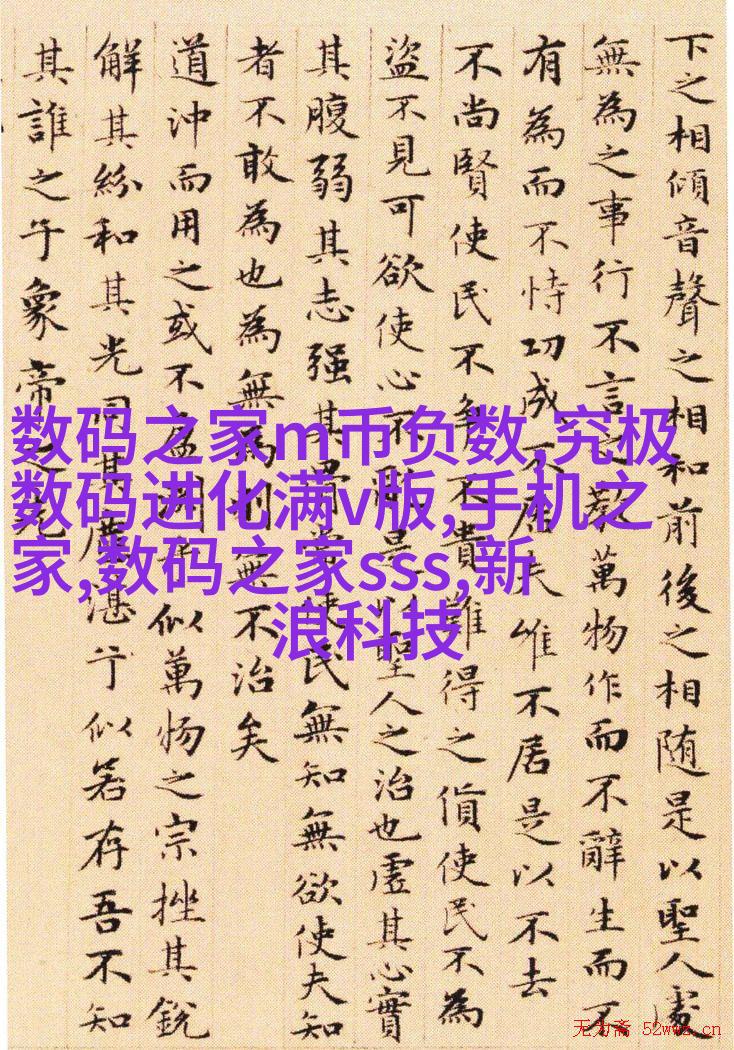 下之相傾音聲之相和前後之相随是以聖人處
無為之事行不言之教萬物作而不辭生而不
有為而不恃功成不居夫唯不居是以不去
不尚賢使民不争不貴難得之貨使民不為
盜不見可欲使心不亂是以聖人之治也虛其心實
其腹弱其志强其骨常使民無知無欲使夫知
者不敢為也為無為則無不治矣
道沖而用之或不盈淵乎似萬物之宗挫其銳
解其紛和其光同其塵湛兮似若存吾不知
其誰之子象帝之先
数码之家m币负数,究极
数码进化满v版,手机之
家,数码之家sss,新
浪科技
无为斋 52wwz.cn